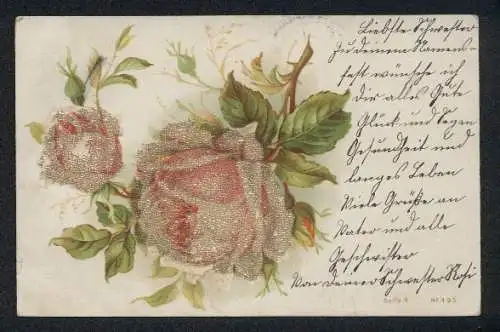 Liebste Schwester
Zu deinem Namens-
fest wünsche ich
dir alles Gute
Glück und Segen
Gesundheit und
langes Leben
Viele Grüße an
Vater und alle
Geschwister
Von deiner Schwester Rosi
Serie 6 Nr. 195